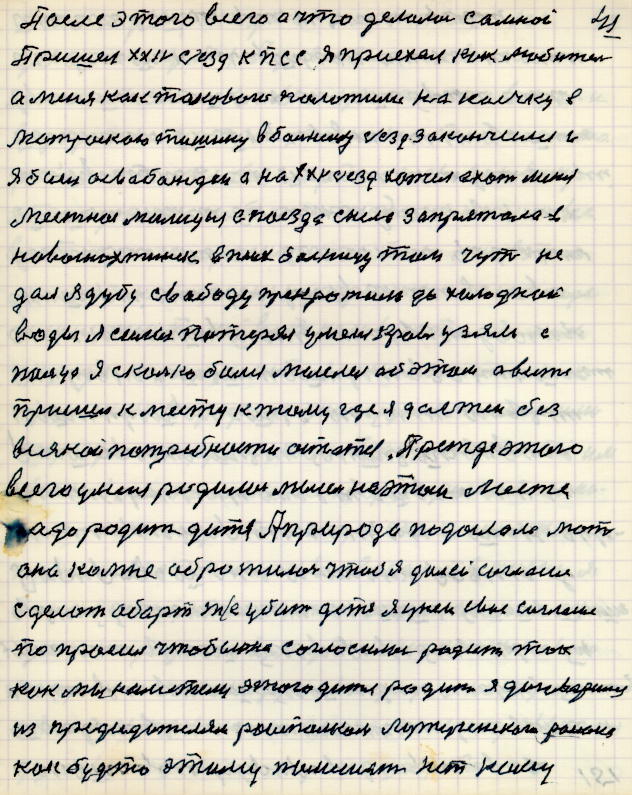 После этого всего а что делали самной 41
Пришел XXIV сезд КПСС. Я приехал как любител
а меня как такового положили на коечку в
матроскою тишину в болницу сезд закончили и
я был асвабажден а на XXV сезд хотел ехат меня
местная милицыя с поезда сняла запрятала в
новошахтинск в псих болницу там чут не
дал я дубу свабоду прекратили да холодной
воды я сили потерял уменя кров узяли с
палца Я сколко были мысли об этом а вити
пришел к месту к тому где я должен без
всякой потребности остатся. Прежде этого
всего уменя родилас мысл на этом месте
надо родит дитя А природа подослала мат
она комне обротилас чтоб я дал ей согласие
сделат абарт т/е убит дитя я унеи свое согласие
по просил чтобы она согласилас родит так
как мы наметили этого дитя родит я договорился
из председателям райполкам Лутугенского района
как будто этому помешат нет кому